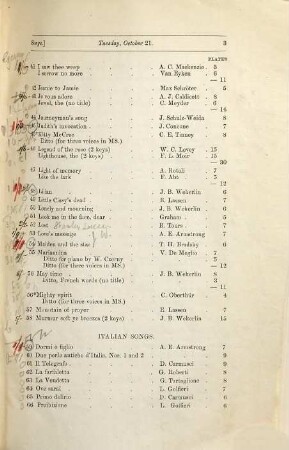 Says] Tuesday, October 21. 3
PLATES
41 I saw thee weep A. C. Mackenzie 5
I sorrow no more Van Eyken 6
— 11
42 Jamie to Jamie Max Schröter 5
Je vous adore A. J. Caldicott 8
Jewel, the (no title) C. Meyder 6
— 14
Journeyman's song J. Schulz-Weida 8
Judith's invocation J. Concone 7
Kitty McCree C. E. Tenney 8
Ditto (for three voices in MS.)
Legend of the rose (2 keys) W. C. Levey 15
Lighthouse, the (2 keys) F. L. Moir 15
— 30
47 Light of memory A. Rotoli 7
Like the lark F. Abt 5
— 12
Lilian J. B. Wekerlin 6
49 Little Casey's dead E. Lassen 7
50 Lonely and mourning J. B. Wekerlin 6
51 Look me in the face, dear Graham 5
52 Lost B. Tours 7
53 Love's message A. E. Armstrong 7
54 Maiden and the star T. H. Bradsky 6
55 Marianina V. De Meglio 7
Ditto for piano by W. Czerny 5
Ditto (for three voices in MS.)
— 12
May time J. B. Wekerlin 8
Ditto, French words (no title) 3
— 11
56*Mighty spirit C. Oberthür 4
Ditto (for three voices in MS.)
57 Mountain of prayer E. Lassen 7
58 Murmur soft ye breezes (2 keys) J. B. Wekerlin 15
ITALIAN SONGS.
Dormi è figlio A. E. Armstrong 7
60 Due perle antiche d'Italia. Nos. 1 and 2 9
61 Il Telegrafo D. Carnusci 9
62 La farfaletta G. Roberti 8
63 La Vendetta G. Tartaglione 8
64 Ove sarai L. Golfieri 7
65 Primo delirio D. Carnusci 6
66 Profazione L. Golfieri 6